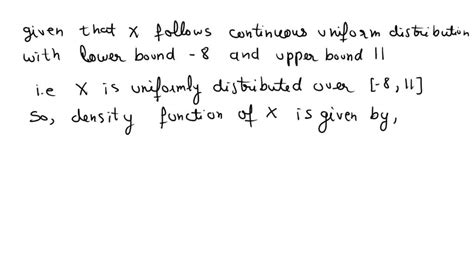 given that X follows continuous uniform distribution
with lower bound -8 and upper bound 11
i.e X is uniformly distributed over [-8, 11]
So, density function of X is given by,